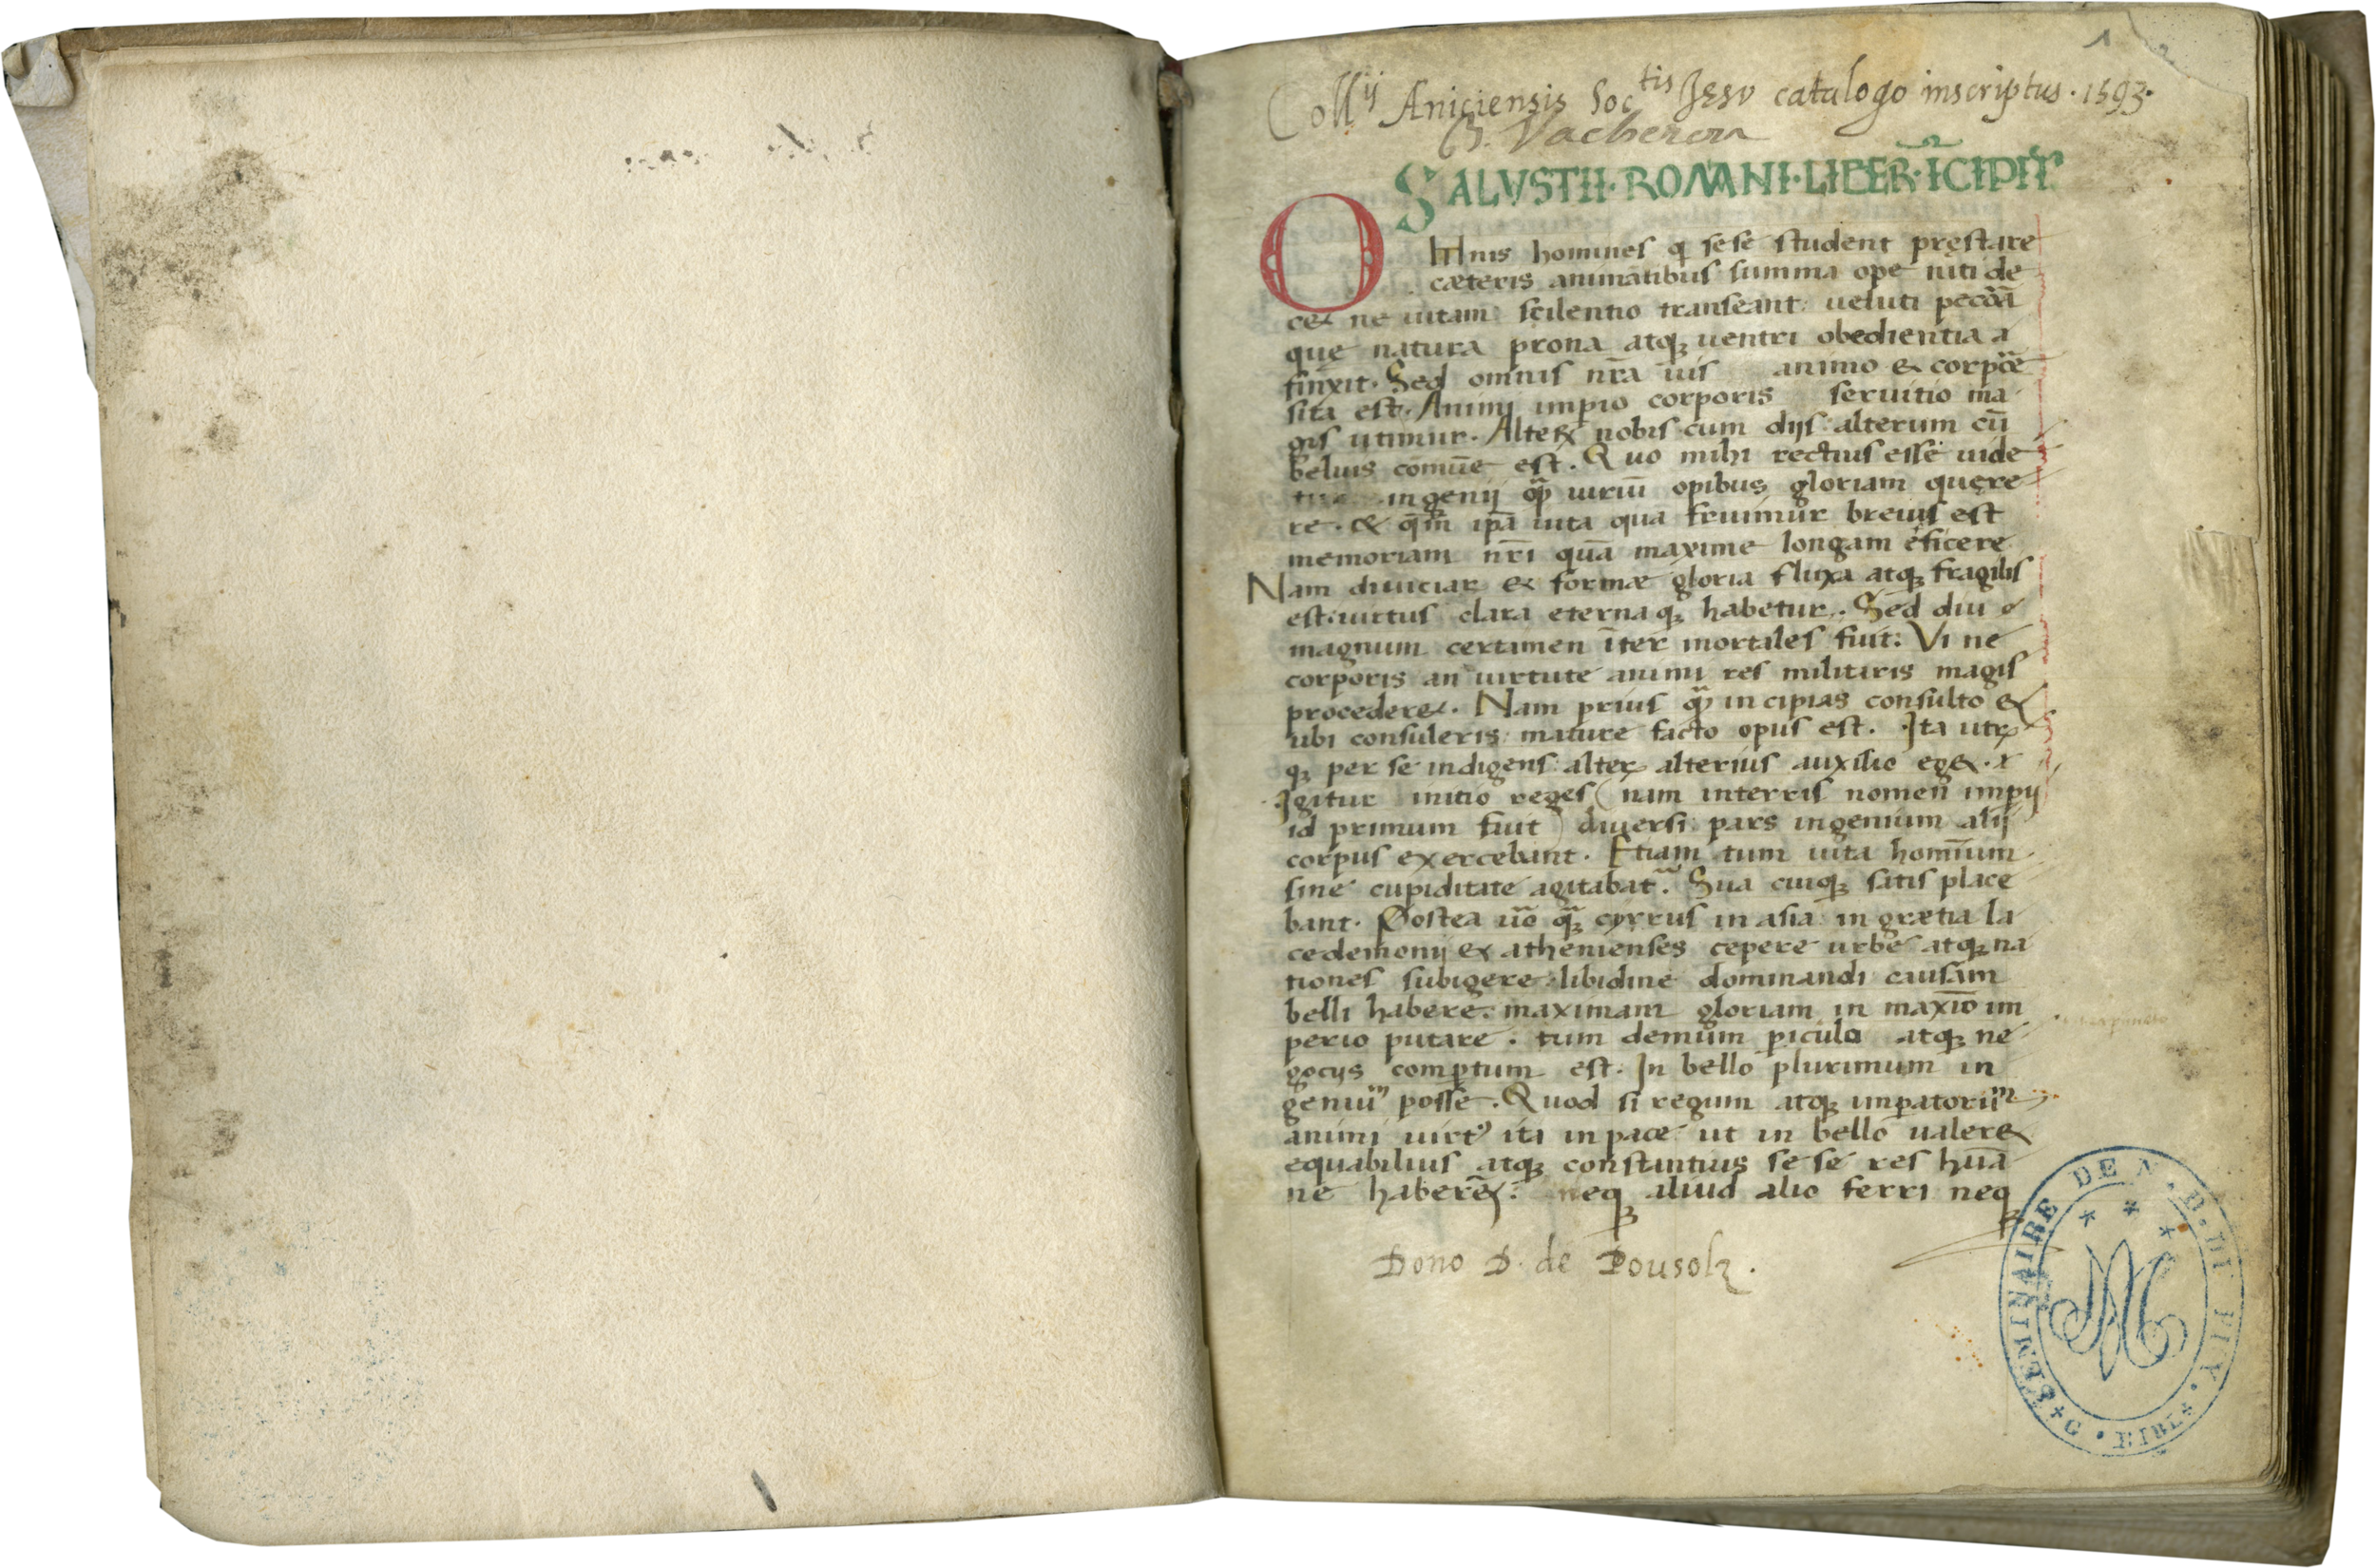 1
Coll^ij Aniciensis Soc^tis Jesv catalogo inscriptus · 1593 ·
Vacheron
SALVSTII · ROMANI · LIBER · ĪCIPIT
Omnis homines q̣ sese student pręstare
cæteris animātibus summa ope niti de
cet ne uitam scilentio transeant: ueluti pecora
que natura prona atq; uentri obedientia
finxit. Sed omnis nr̄a uis animo & corpore
sita est. Animi imp̄io corporis seruitio ma
gis utimur. Alterꝝ nobis cum dijs: alterum cū
beluis comūe est. Quo mihi rectius esse uide
tur ingenij q̣ͣ uiriū opibus gloriam quęre
re. & qm̄ ip̄a uita qua fruimur breuis est
memoriam nr̄i quā maxime longam eficere
Nam diuiciar & formæ gloria fluxa atq; fragilis
est: uirtus clara eterna q; habetur. Sed diu
magnum certamen īter mortales fuit: Vi ne
corporis an uirtute animi res militaris magis
proceder&. Nam prius q̣ͣ incipias consulto &
ubi consuleris: mature facto opus est. Ita utr̄
q; per se indigens: alter alterius auxilio eg&.
Igitur initio reges (nam interris nomen imp̄ij
id primum fuit) diuersi: pars ingenium alij
corpus exercebant. Etiam tum uita hominum
sine cupiditate agitabat᷑. Sua cuiq; satis place
bant. Postea uͦo q̣ͣ cyrrus in asia: in grætia la
cedemonij & athenienses cepere urbes atq; na
tiones subigere: libidine dominandi causam
belli habere: maximam gloriam in maxīo im
perio putare. tum demum piculo atq; ne
gocijs comp̄tum est. In bello plurimum in
geniū posse. Quod si regum atq; imp̄atoriū
animi uirt⁹ ita in pace ut in bello ualer&
equabilius atq; constantius sese res huā
ne haberēt: neq; aliud alio ferri neq;
Dono D. de Pousolz.
G. SEMINAIRE DE N. D. DU PUY · BIBL